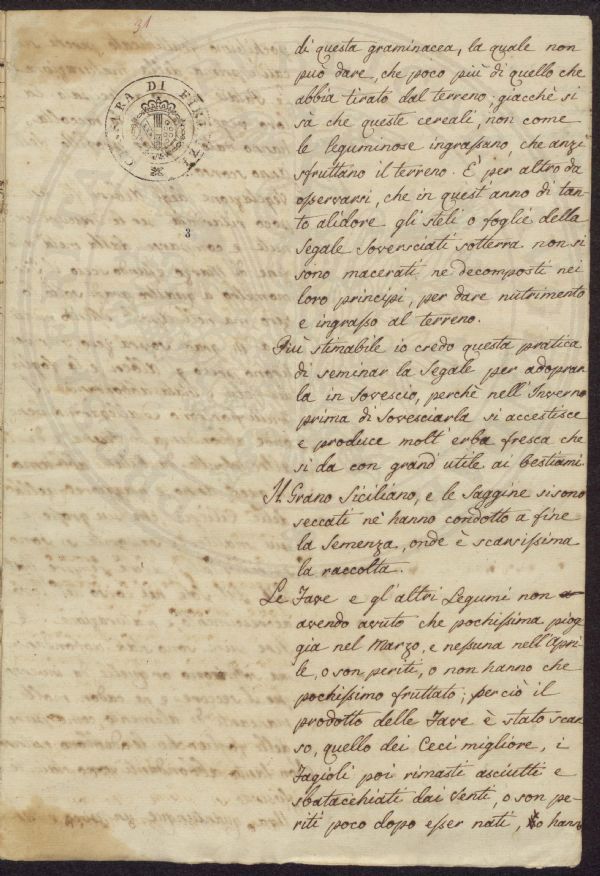 31
CAMERA DI FIRENZE
3
di questa graminacea, la quale non
può dare, che poco più di quello che
abbia tirato dal terreno; giacchè si
sà che queste cereali, non come
le leguminose ingrassano, che anzi
sfruttano il terreno. È per altro da
osservarsi, che in quest'anno di tan-
to alidore gli steli o foglie della
Segale soversciati sotterra non si
sono macerati, nè decomposti nei
loro principj, per dare nutrimento
e ingrasso al terreno.
Più stimabile io credo questa pratica
di seminar la Segale per adoprar
la in Sovescio, perchè nell'Inverno
prima di Sovesciarla si accestisce
e produce molt'erba fresca che
si da con grand'utile ai bestiami.
Il Grano Siciliano, e le Saggine si sono
seccati nè hanno condotto a fine
la Semenza, onde è scarsissima
la raccolta.
Le Fave e gl'altri Legumi non
avendo avuto che pochissima piog
gia nel Marzo, e nessuna nell'Apri
le, o son periti, o non hanno che
pochissimo fruttato; perciò il
prodotto delle Fave è stato scar
so, quello dei Ceci migliore, i
Fagioli poi rimasti asciutti e
sbatacchiati dai Venti, o son pe-
riti poco dopo esser nati, o hann